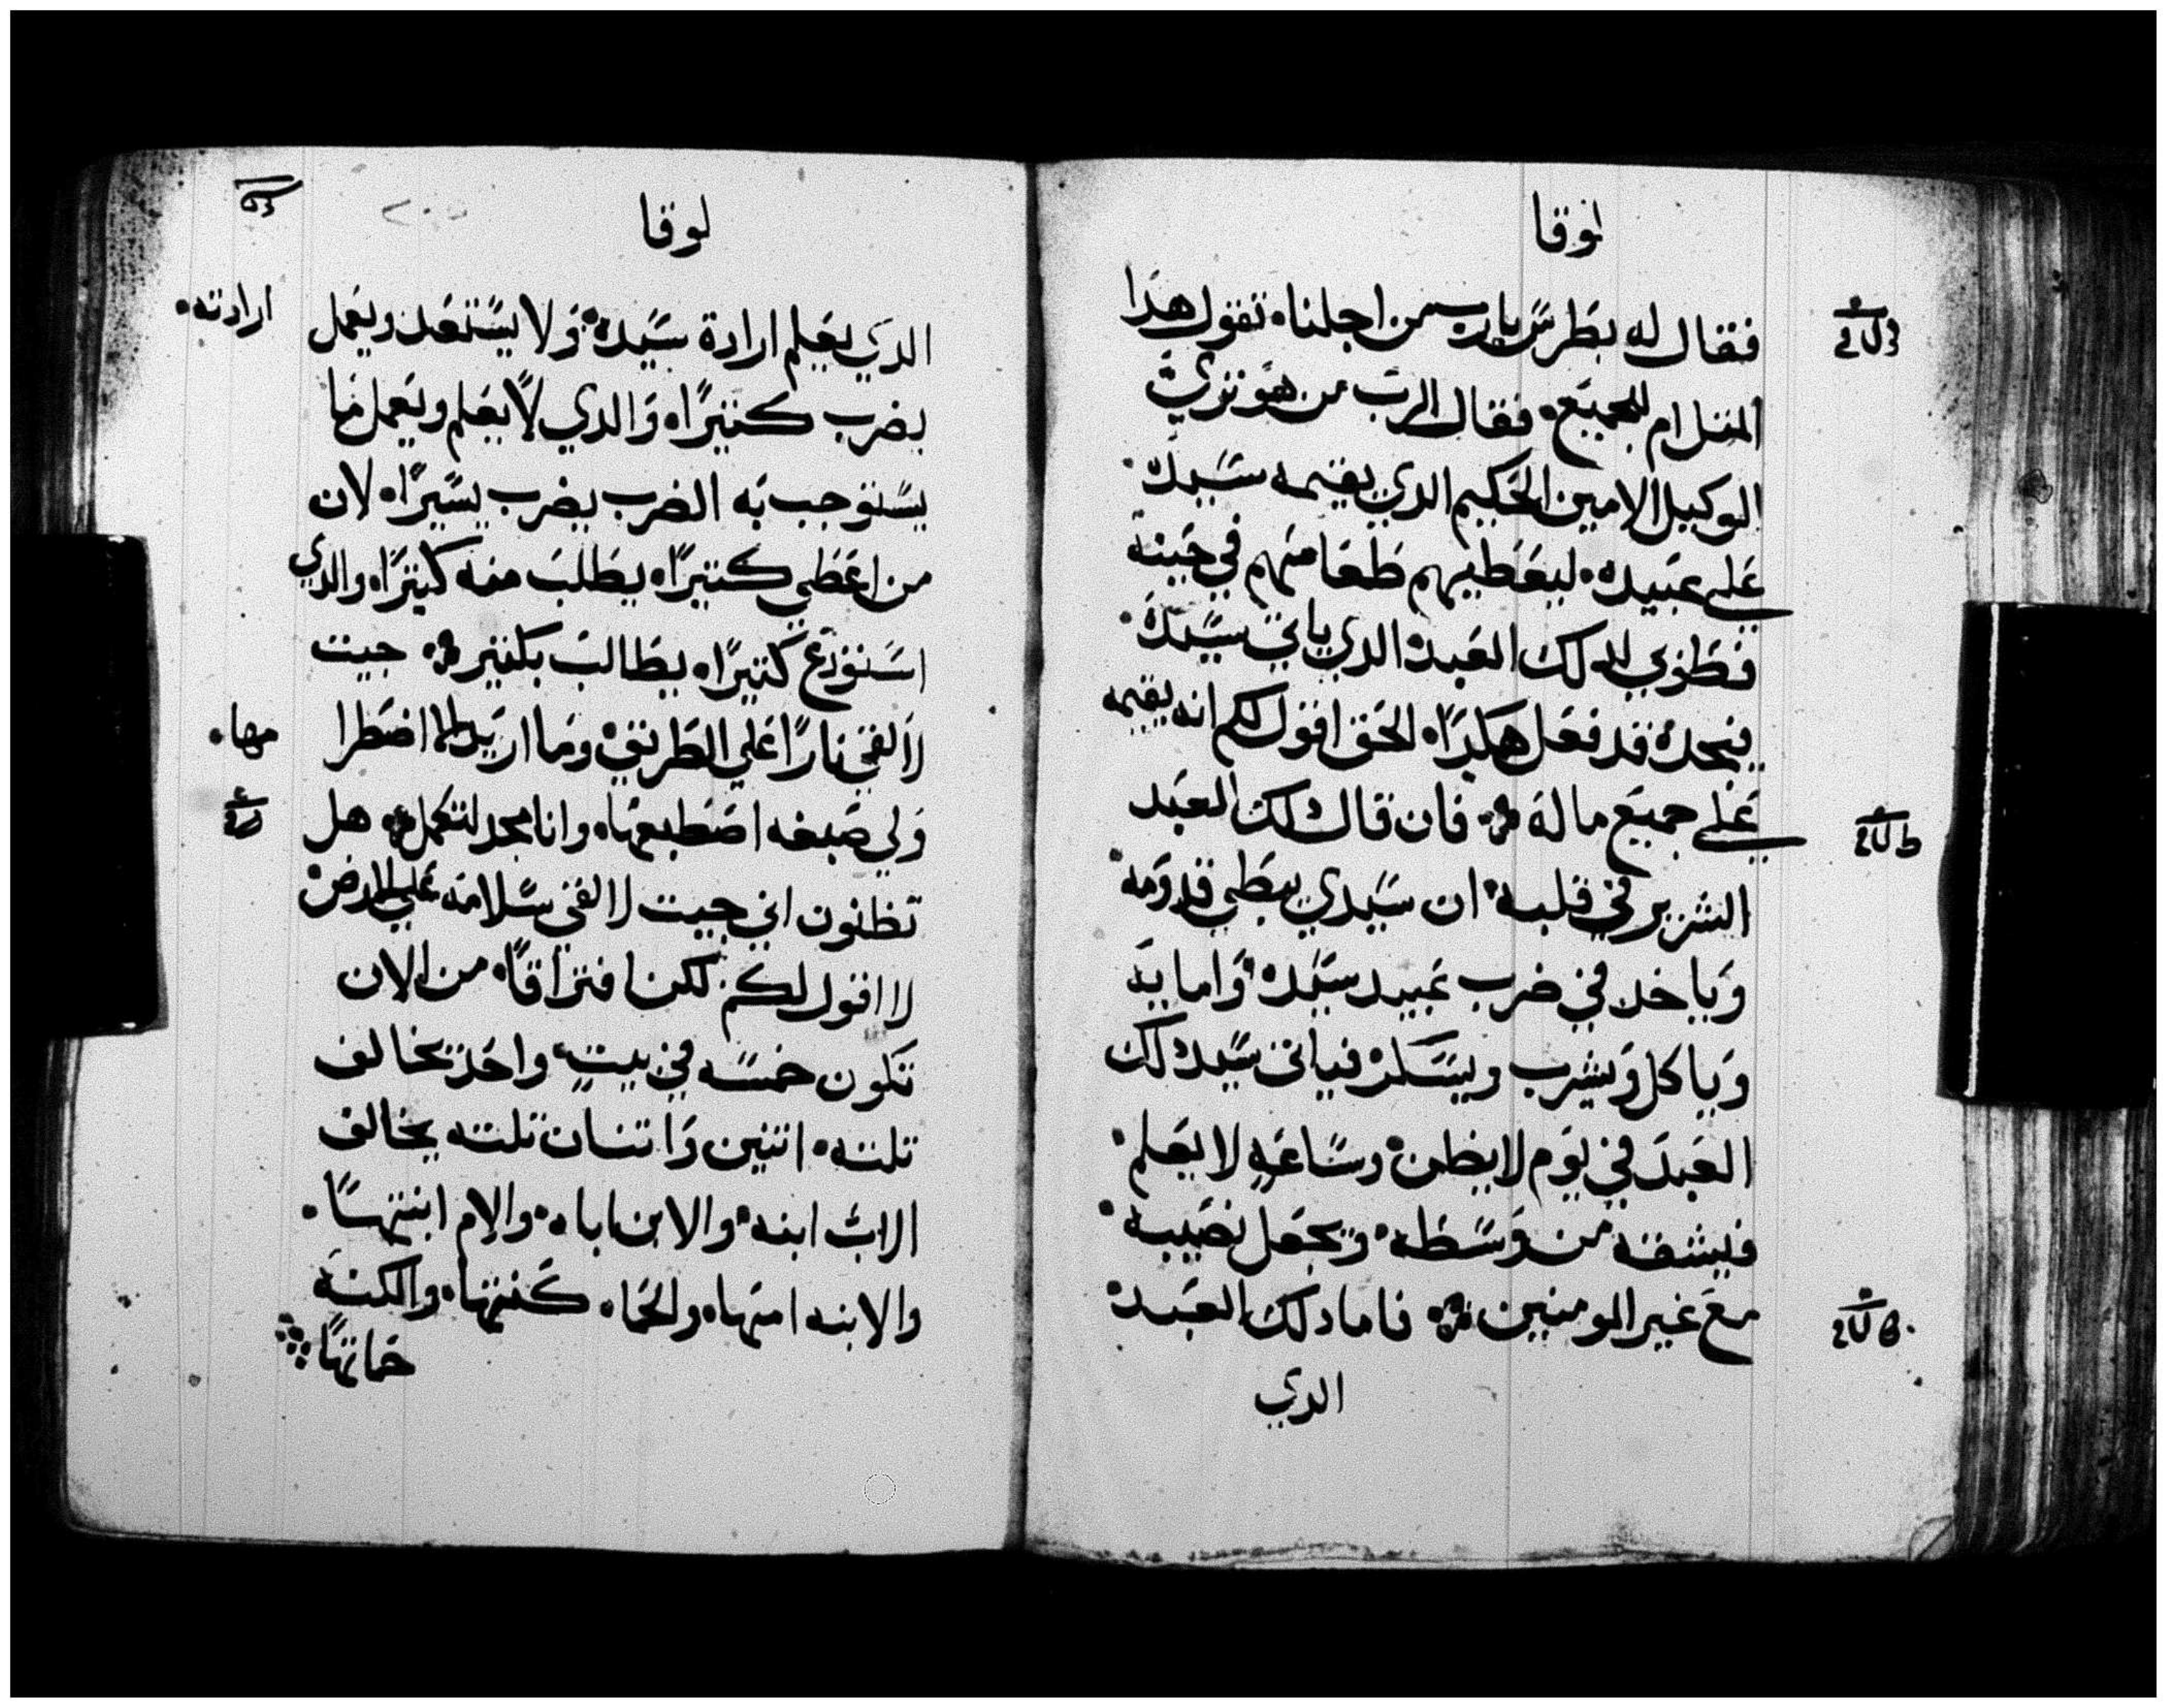 لوقا
فقال له بطرس يارب من اجلنا تقول هدا
المتل ام للجميع فقال الرب من هو تري
الوكيل الامين الحكيم الدي يقيمه سيده
علي عبيده ليعطيهم طعامهم في حينه
فطوبي لدلك العبد الدي ياتي سيده
فيجده قد فعل هكدا الحق اقول لكم انه يقيمه
علي جميع ماله فان قال دلك العبد
الشرير في قلبه ان سيدي يبطي قدومه
وياخد في ضرب عبيد سيده وامايه
وياكل ويشرب ويسكر فياتي سيد دلك
العبد في يوم لا يظن وساعه لا يعلم
فيشقه من وسطه ويجعل نصيبه
مع غير المومنين فاما دلك العبد
الدي
لوقا
الدي يعلم ارادة سيده ولا يستعد ويعمل ارادته
يضرب كتيرا والدي لا يعلم ويعمل ما
يستوجب به الضرب يضرب يسيرا لان
من اعطي كتيرا يطلب منه كتيرا والدي
استودع كتيرا يطالب بكتير جيت
لالقي نارا علي الطريق وما اريد الا اضطرامها
ولي صبغه اصطبغها وانا مجد لتكمل هل
تظنون اني جيت لالقي سلامه علي الارض
لا اقول لكم لكن افتراقا من الان
تكون خمسه في بيت واحد تخالف
تلته اتنين واتنان تلته يخالف
الاب ابنه والابن اباه والام ابنتها
والابنه امها والحماه كنتها والكنه
حماتها